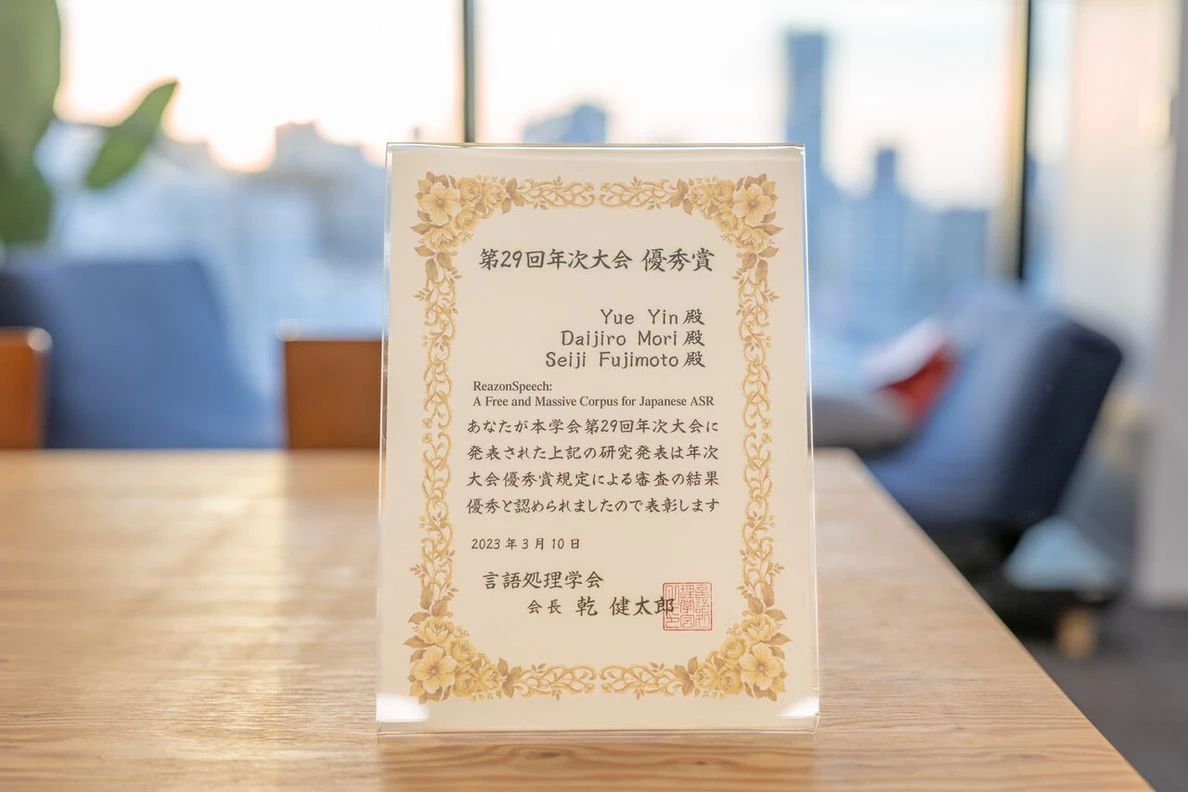 第29回年次大会 優秀賞
Yue Yin殿
Daijiro Mori殿
Seiji Fujimoto殿
ReazonSpeech:
A Free and Massive Corpus for Japanese ASR
あなたが本学会第29回年次大会に
発表された上記の研究発表は年次
大会優秀賞規定による審査の結果
優秀と認められましたので表彰します
2023年3月10日
言語処理学会
会長 乾 健太郎